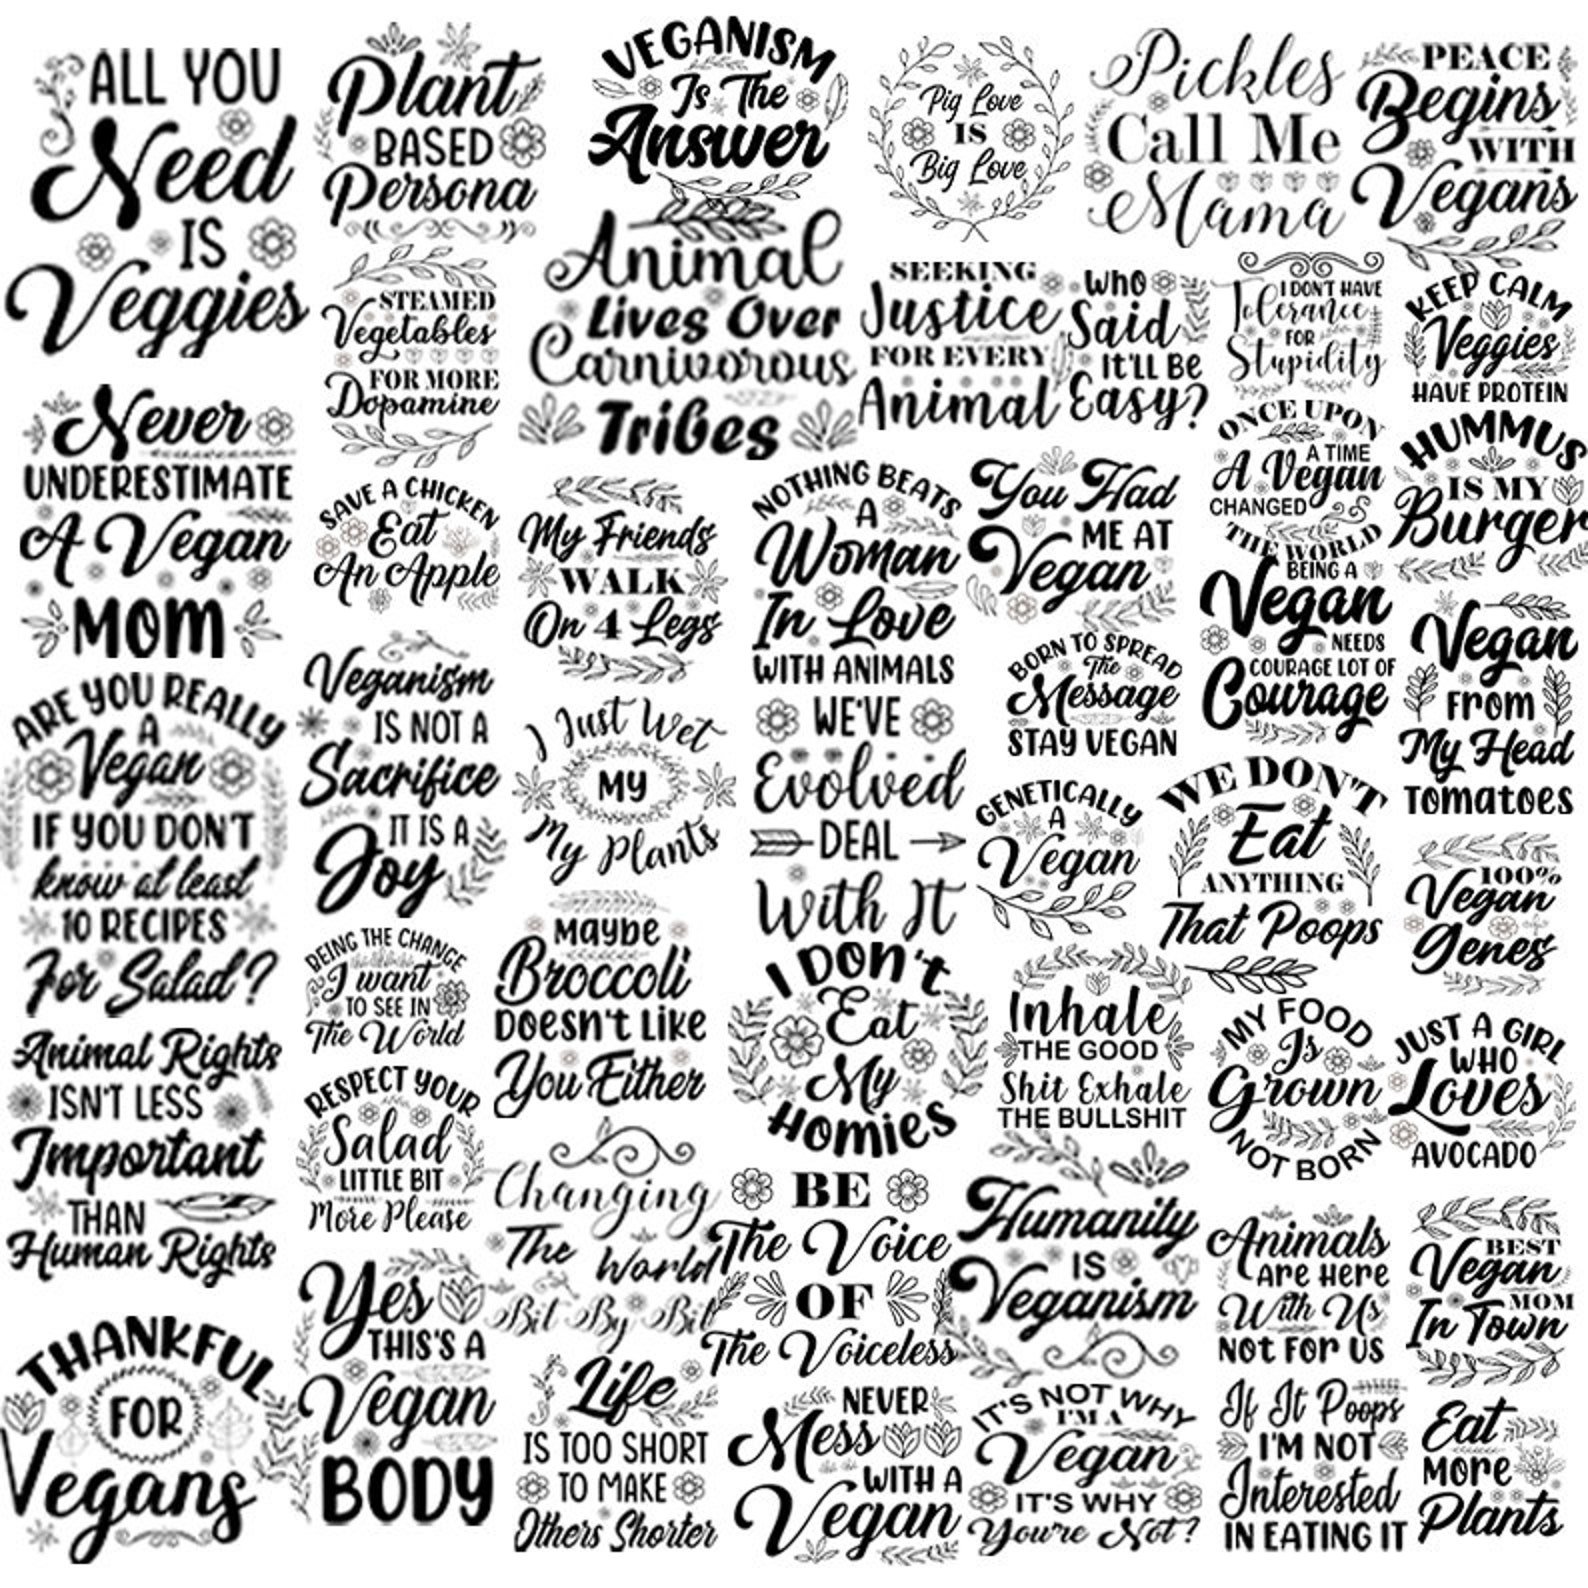 ALL YOU
Need
IS
Veggies
Plant
BASED
Persona
VEGANISM
Is The
Answer
Pig Love
IS
Big Love
Pickles
Call Me
Mama
PEACE
Begins
WITH
Vegans
STEAMED
Vegetables
FOR MORE
Dopamine
Animal
Lives Over
Carnivorous
Tribes
SEEKING
Justice
FOR EVERY
Animal
Who
Said
IT'LL BE
Easy?
I DON'T HAVE
Tolerance
FOR
Stupidity
KEEP CALM
Veggies
HAVE PROTEIN
Never
UNDERESTIMATE
A Vegan
MOM
SAVE A CHICKEN
Eat
An Apple
My Friends
WALK
On 4 Legs
NOTHING BEATS
A
Woman
In Love
WITH ANIMALS
You Had
ME AT
Vegan
ONCE UPON
A TIME
A Vegan
CHANGED
THE WORLD
HUMMUS
IS MY
Burger
BEING A
Vegan
NEEDS
COURAGE LOT OF
Courage
Vegan
From
My Head
Tomatoes
ARE YOU REALLY
A
Vegan
IF YOU DON'T
know at least
10 RECIPES
For Salad?
Veganism
IS NOT A
Sacrifice
IT IS A
Joy
I Just Wet
MY
My Plants
WE'VE
Evolved
DEAL
With It
BORN TO SPREAD
The
Message
STAY VEGAN
GENETICALLY
A
Vegan
WE DON'T
Eat
ANYTHING
That Poops
100%
Vegan
Genes
BEING THE CHANGE
I want
TO SEE IN
The World
Maybe
Broccoli
Doesn't Like
You Either
I Don't
Eat
My
Homies
Inhale
THE GOOD
Shit Exhale
THE BULLSHIT
MY FOOD
Is
Grown
NOT BORN
JUST A GIRL
WHO
Loves
AVOCADO
Animal Rights
ISN'T LESS
Important
THAN
Human Rights
RESPECT YOUR
Salad
LITTLE BIT
More Please
Changing
The World
Bit By Bit
BE
The Voice
OF
The Voiceless
Humanity
IS
Veganism
Animals
Are Here
With Us
Not For Us
BEST
Vegan
MOM
In Town
THANKFUL
FOR
Vegans
Yes
THIS'S A
Vegan
BODY
Life
IS TOO SHORT
TO MAKE
Others Shorter
NEVER
Mess
WITH A
Vegan
IT'S NOT WHY
I'M A
Vegan
IT'S WHY
You're Not?
If It Poops
I'M NOT
Interested
IN EATING IT
Eat
More
Plants